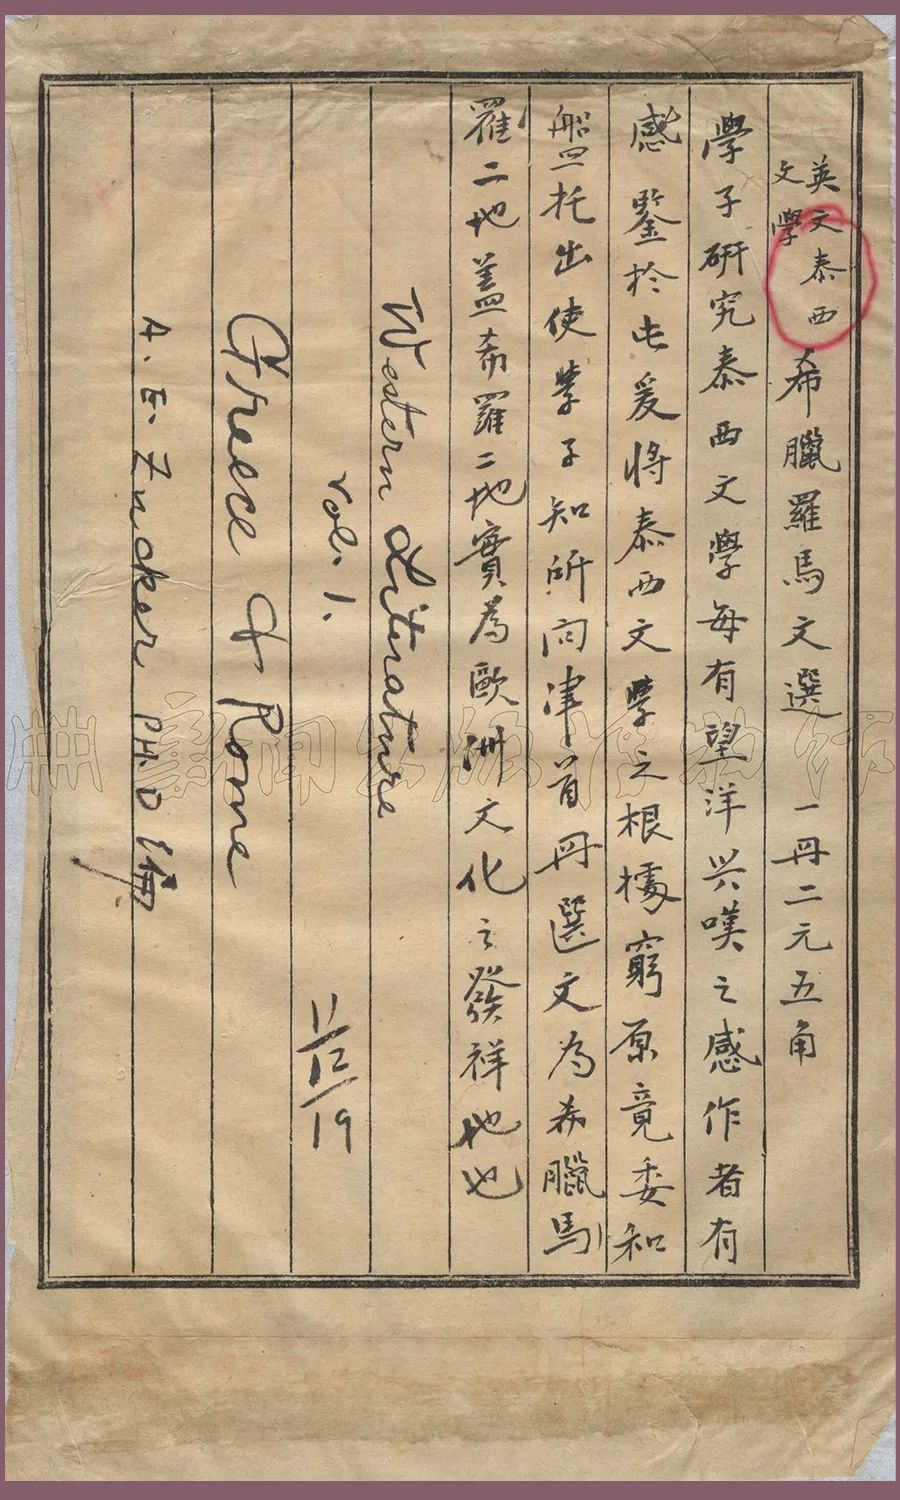 英文泰西文學 希臘羅馬文選 一冊二元五角
學子研究泰西文學每有望洋兴嘆之感作者有
感鑒於此爰將泰西文學之根據窮原竟委和
盤托出使學子知所问津首冊選文为希臘馬
羅二地盖希羅二地實為歐洲文化之發祥地也
Western Literature
Vol. 1.
11/12/19
Greece & Rome
A. E. Zucker PH. D 编